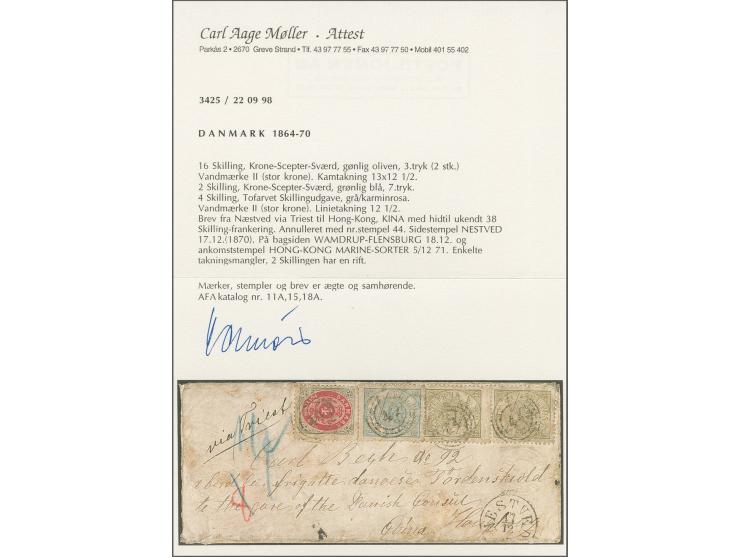 Carl Aage Møller . Attest
Parkås 2 • 2670 Greve Strand • Tlf. 43 97 77 55 • Fax 43 97 77 50 • Mobil 401 55 402
3425 / 22 09 98
DANMARK 1864-70
16 Skilling, Krone-Scepter-Sværd, gønlig oliven, 3.tryk (2 stk.)
Vandmærke II (stor krone). Kamtakning 13x12 1/2.
2 Skilling, Krone-Scepter-Sværd, grønlig blå, 7.tryk.
4 Skilling, Tofarvet Skillingudgave, grå/karminrosa.
Vandmærke II (stor krone). Linietakning 12 1/2.
Brev fra Næstved via Triest til Hong-Kong, KINA med hidtil ukendt 38
Skilling-frankering. Annulleret med nr.stempel 44. Sidestempel NESTVED
17.12.(1870). På bagsiden WAMDRUP-FLENSBURG 18.12. og
ankomststempel HONG-KONG MARINE-SORTER 5/12 71. Enkelte
takningsmangler, 2 Skillingen har en rift.
Mærker, stempler og brev er ægte og samhørende.
AFA katalog nr. 11A,15,18A.
via Triest
Carl Bøgh No 92
frigatte danoise Tordenskiold
to the care of the Danish Consul
China